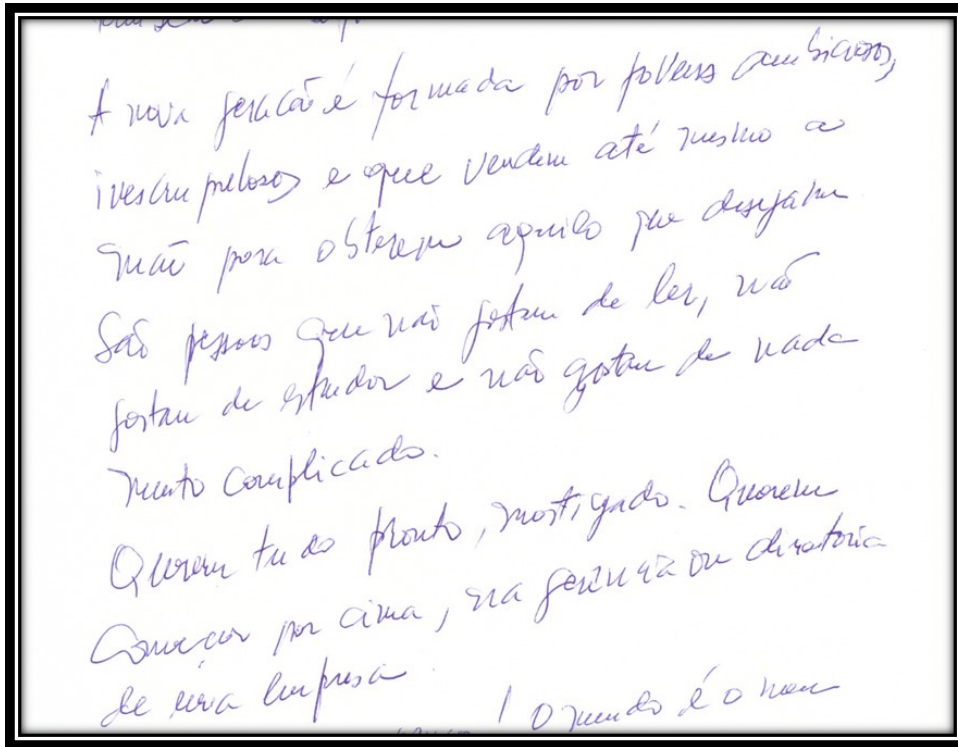 A nova geração é formada por jovens ambiciosos,
inescrupulosos e que vendem até mesmo a
mãe para obterem aquilo que desejam
São pessoas que não gostam de ler, não
gostam de estudar e não gostam de nada
muito complicado.
Querem tudo pronto, mastigado. Querem
começar por cima, na gerência ou diretoria
de uma empresa
! O mundo é o meu